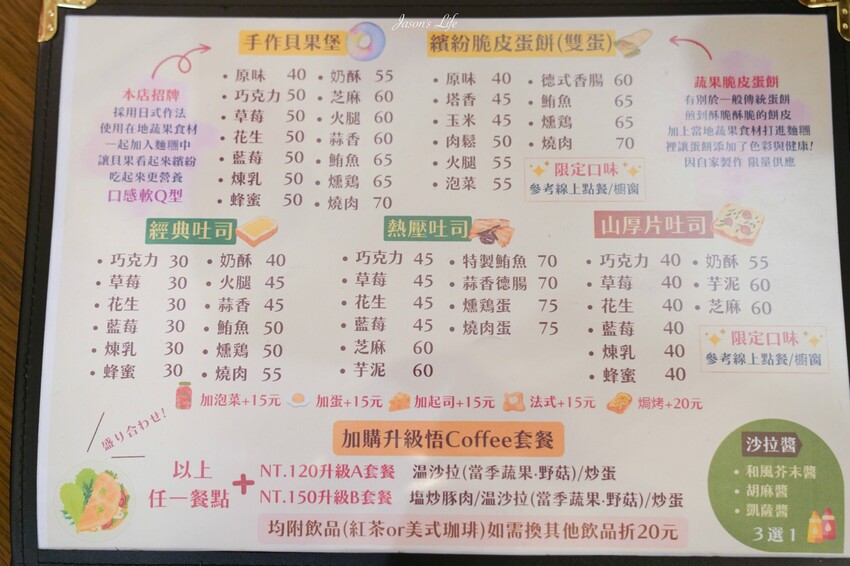 Jason's Life
手作貝果堡
原味 40
巧克力 50
草莓 50
花生 50
藍莓 50
煉乳 50
蜂蜜 50
奶酥 55
芝麻 60
火腿 60
蒜香 60
鮪魚 65
燻鷄 65
燒肉 70
本店招牌
採用日式作法
使用在地蔬果食材
一起加入麵糰中
讓貝果看起來繽紛
吃起來更營養
口感軟Q型
繽紛脆皮蛋餅(雙蛋)
原味 40
塔香 45
玉米 45
肉鬆 50
火腿 55
泡菜 55
德式香腸 60
鮪魚 65
燻鷄 65
燒肉 70
限定口味
參考線上點餐/櫥窗
蔬果脆皮蛋餅
有別於一般傳統蛋餅
煎到酥脆酥脆的餅皮
加上當地蔬果食材打進麵糰
裡讓蛋餅添加了色彩與健康!
因自家製作 限量供應
經典吐司
巧克力 30
草莓 30
花生 30
藍莓 30
煉乳 30
蜂蜜 30
奶酥 40
火腿 45
蒜香 45
鮪魚 50
燻鷄 50
燒肉 55
熱壓吐司
巧克力 45
草莓 45
花生 45
藍莓 45
芝麻 60
芋泥 60
特製鮪魚 70
蒜香德腸 70
燻鷄蛋 75
燒肉蛋 75
山厚片吐司
巧克力 40
草莓 40
花生 40
藍莓 40
煉乳 40
蜂蜜 40
奶酥 55
芋泥 60
芝麻 60
限定口味
參考線上點餐/櫥窗
加泡菜+15元 加蛋+15元 加起司+15元 法式+15元 焗烤+20元
盛り合わせ!
加購升級悟Coffee套餐
以上
任一餐點
+
NT.120升級A套餐 溫沙拉(當季蔬果·野菇)/炒蛋
NT.150升級B套餐 塩炒豚肉/溫沙拉(當季蔬果·野菇)/炒蛋
均附飲品(紅茶or美式珈琲)如需換其他飲品折20元
沙拉醬
和風芥末醬
胡麻醬
凱薩醬
3選1